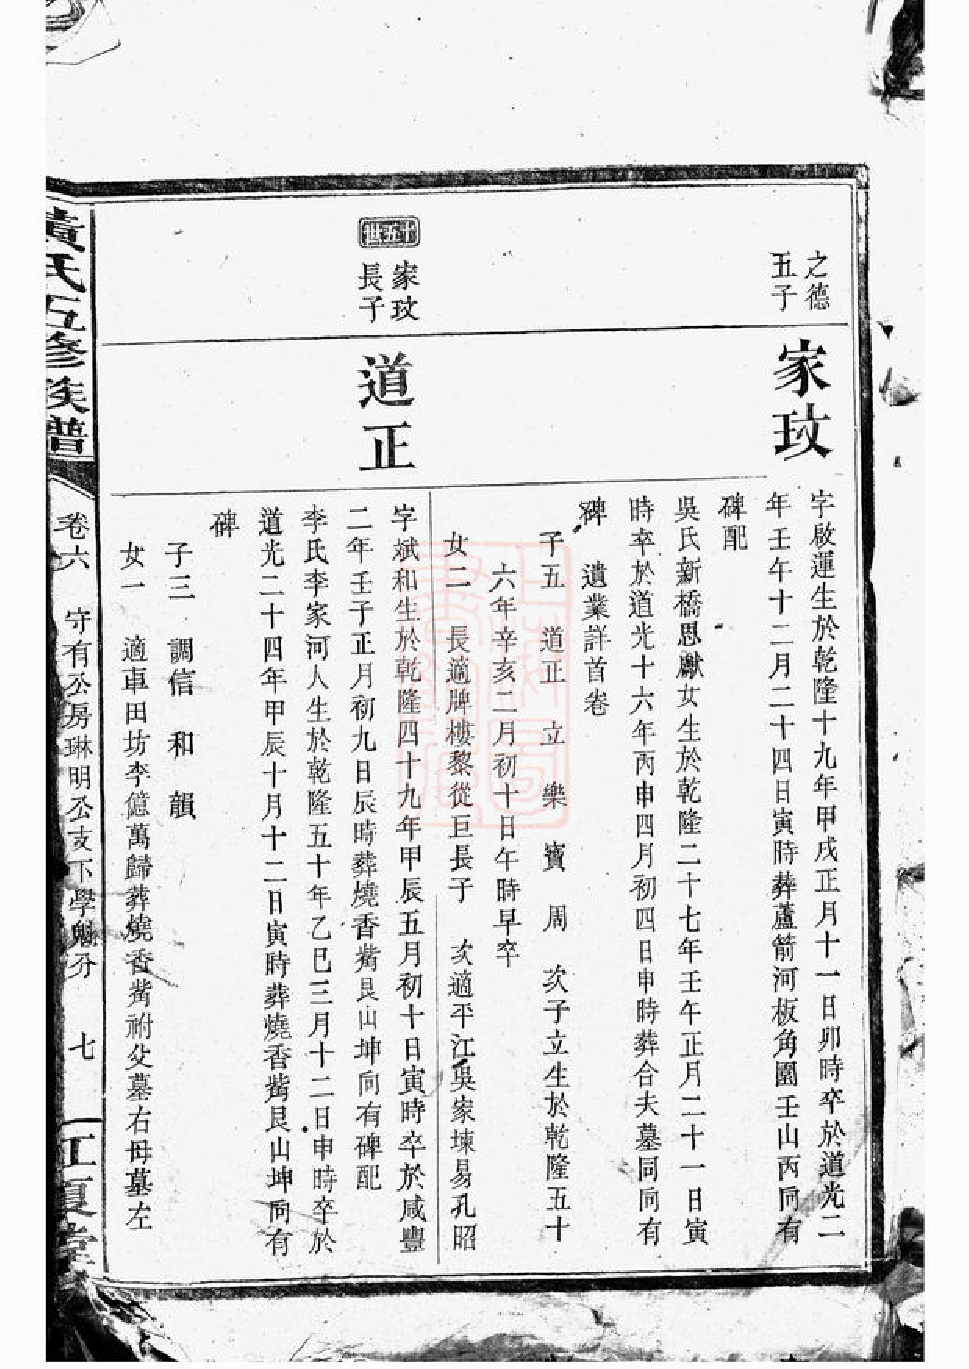 之德
五子
家玟
字啟運生於乾隆十九年甲戌正月十一日卯時卒於道光二
年壬午十二月二十四日寅時葬蘆箭河板角圍壬山丙向有
碑配
吳氏新橋思獻女生於乾隆二十七年壬午正月二十一日寅
時卒於道光十六年丙申四月初四日申時葬合夫墓同向有
碑 遺業詳首卷
子五 道正 立 樂 寶 周 次子立生於乾隆五十
六年辛亥二月初十日午時早卒
女二 長適牌樓黎從巨長子 次適平江吳家埬易孔昭
十五世
家玟
長子
道正
字斌和生於乾隆四十九年甲辰五月初十日寅時卒於咸豐
二年壬子正月初九日辰時葬燒香觜艮山坤向有碑配
李氏李家河人生於乾隆五十年乙巳三月十二日申時卒於
道光二十四年甲辰十月十二日寅時葬燒香觜艮山坤向有
碑
子三 調信 和 韻
女一 適車田坊李億萬歸葬燒香觜祔父墓右母墓左
黃氏五修族譜
卷六 守有公房琳明公支下學魁分 七
江夏堂